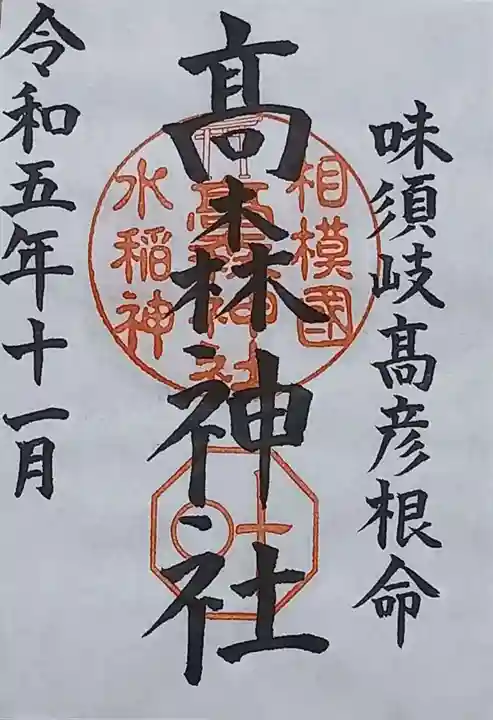 味須岐髙彦根命
髙森神社
相模國
髙森神社
水稲神
令和五年十一月